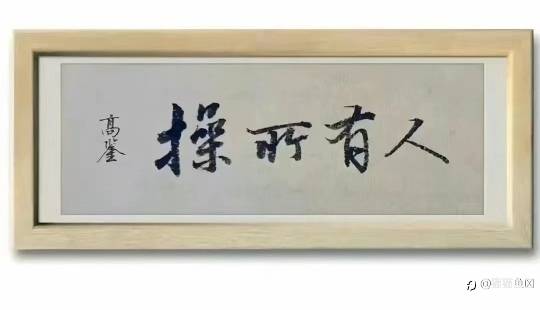 人有所操
高鉴